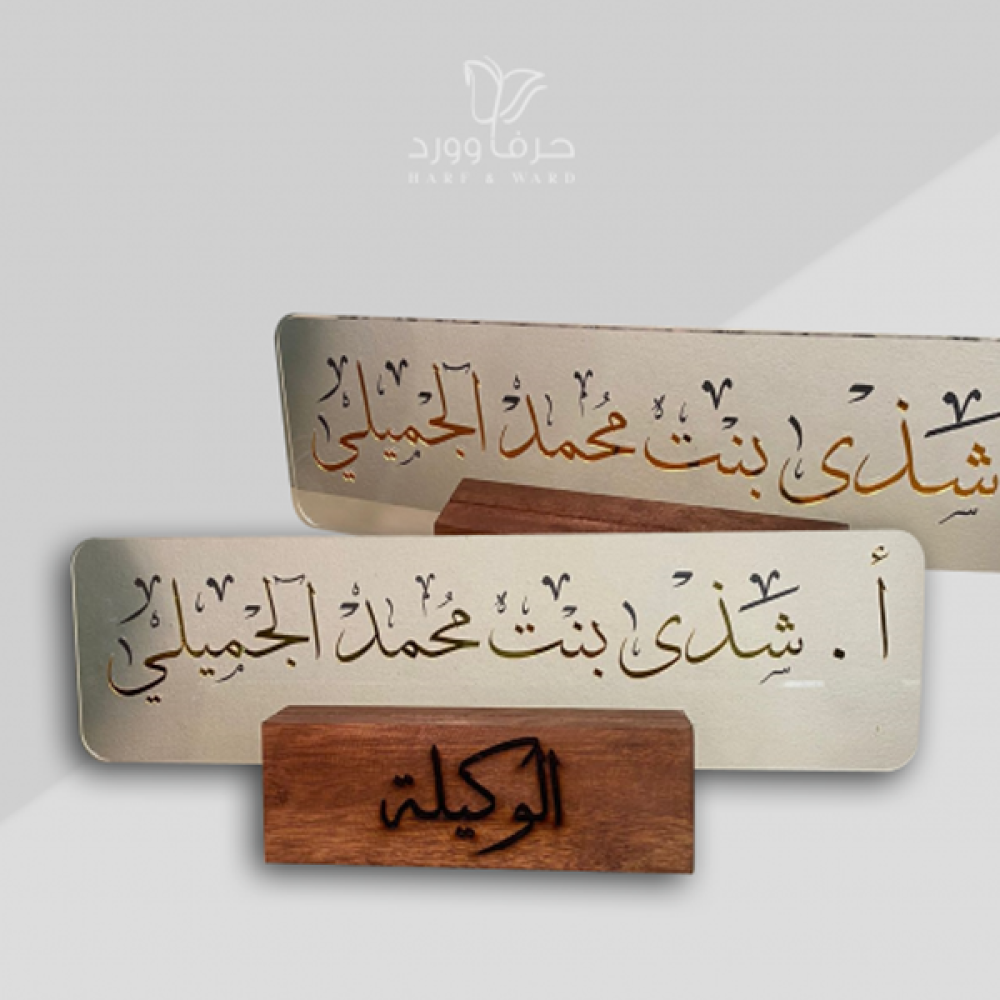 حرف وورد
HARF & WARD
شذى بنت محمد الجميلي
أ. شذى بنت محمد الجميلي
الوكيلة